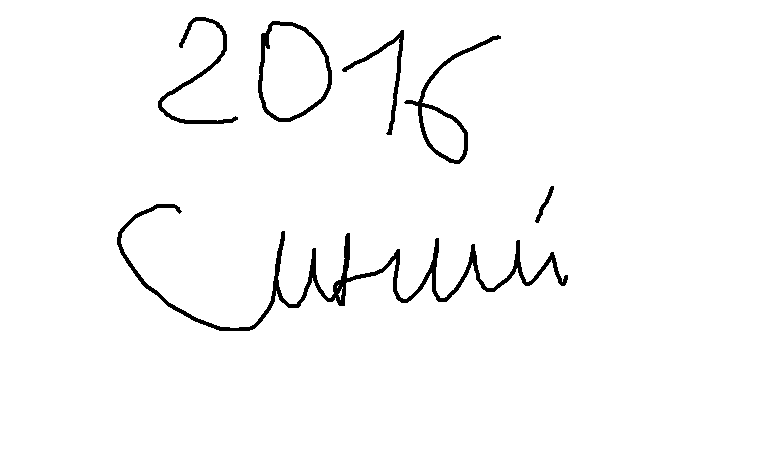 2016
Синий